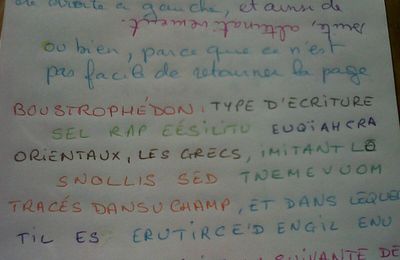 de droite à gauche, et ainsi de
suite, alternativement.
ou bien, parce que ce n'est
pas facile de retourner la page
BOUSTROPHÉDON : TYPE D'ÉCRITURE
SEL RAP EÉSILITU EUQÏAHCRA
ORIENTAUX, LES GRECS, IMITANT LE
SNOLLIS SED TNEMEVUOM
TRACÉS DANSU CHAMP, ET DANS LEQUE
TIL ES ERUTIRCE'D ENGIL ENU
SUIVANTE DE